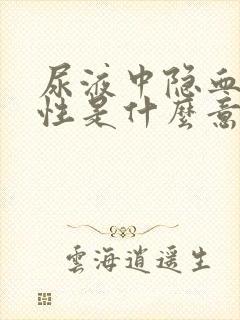 尿液中隐血
性是什麼意
雲海逍遥生